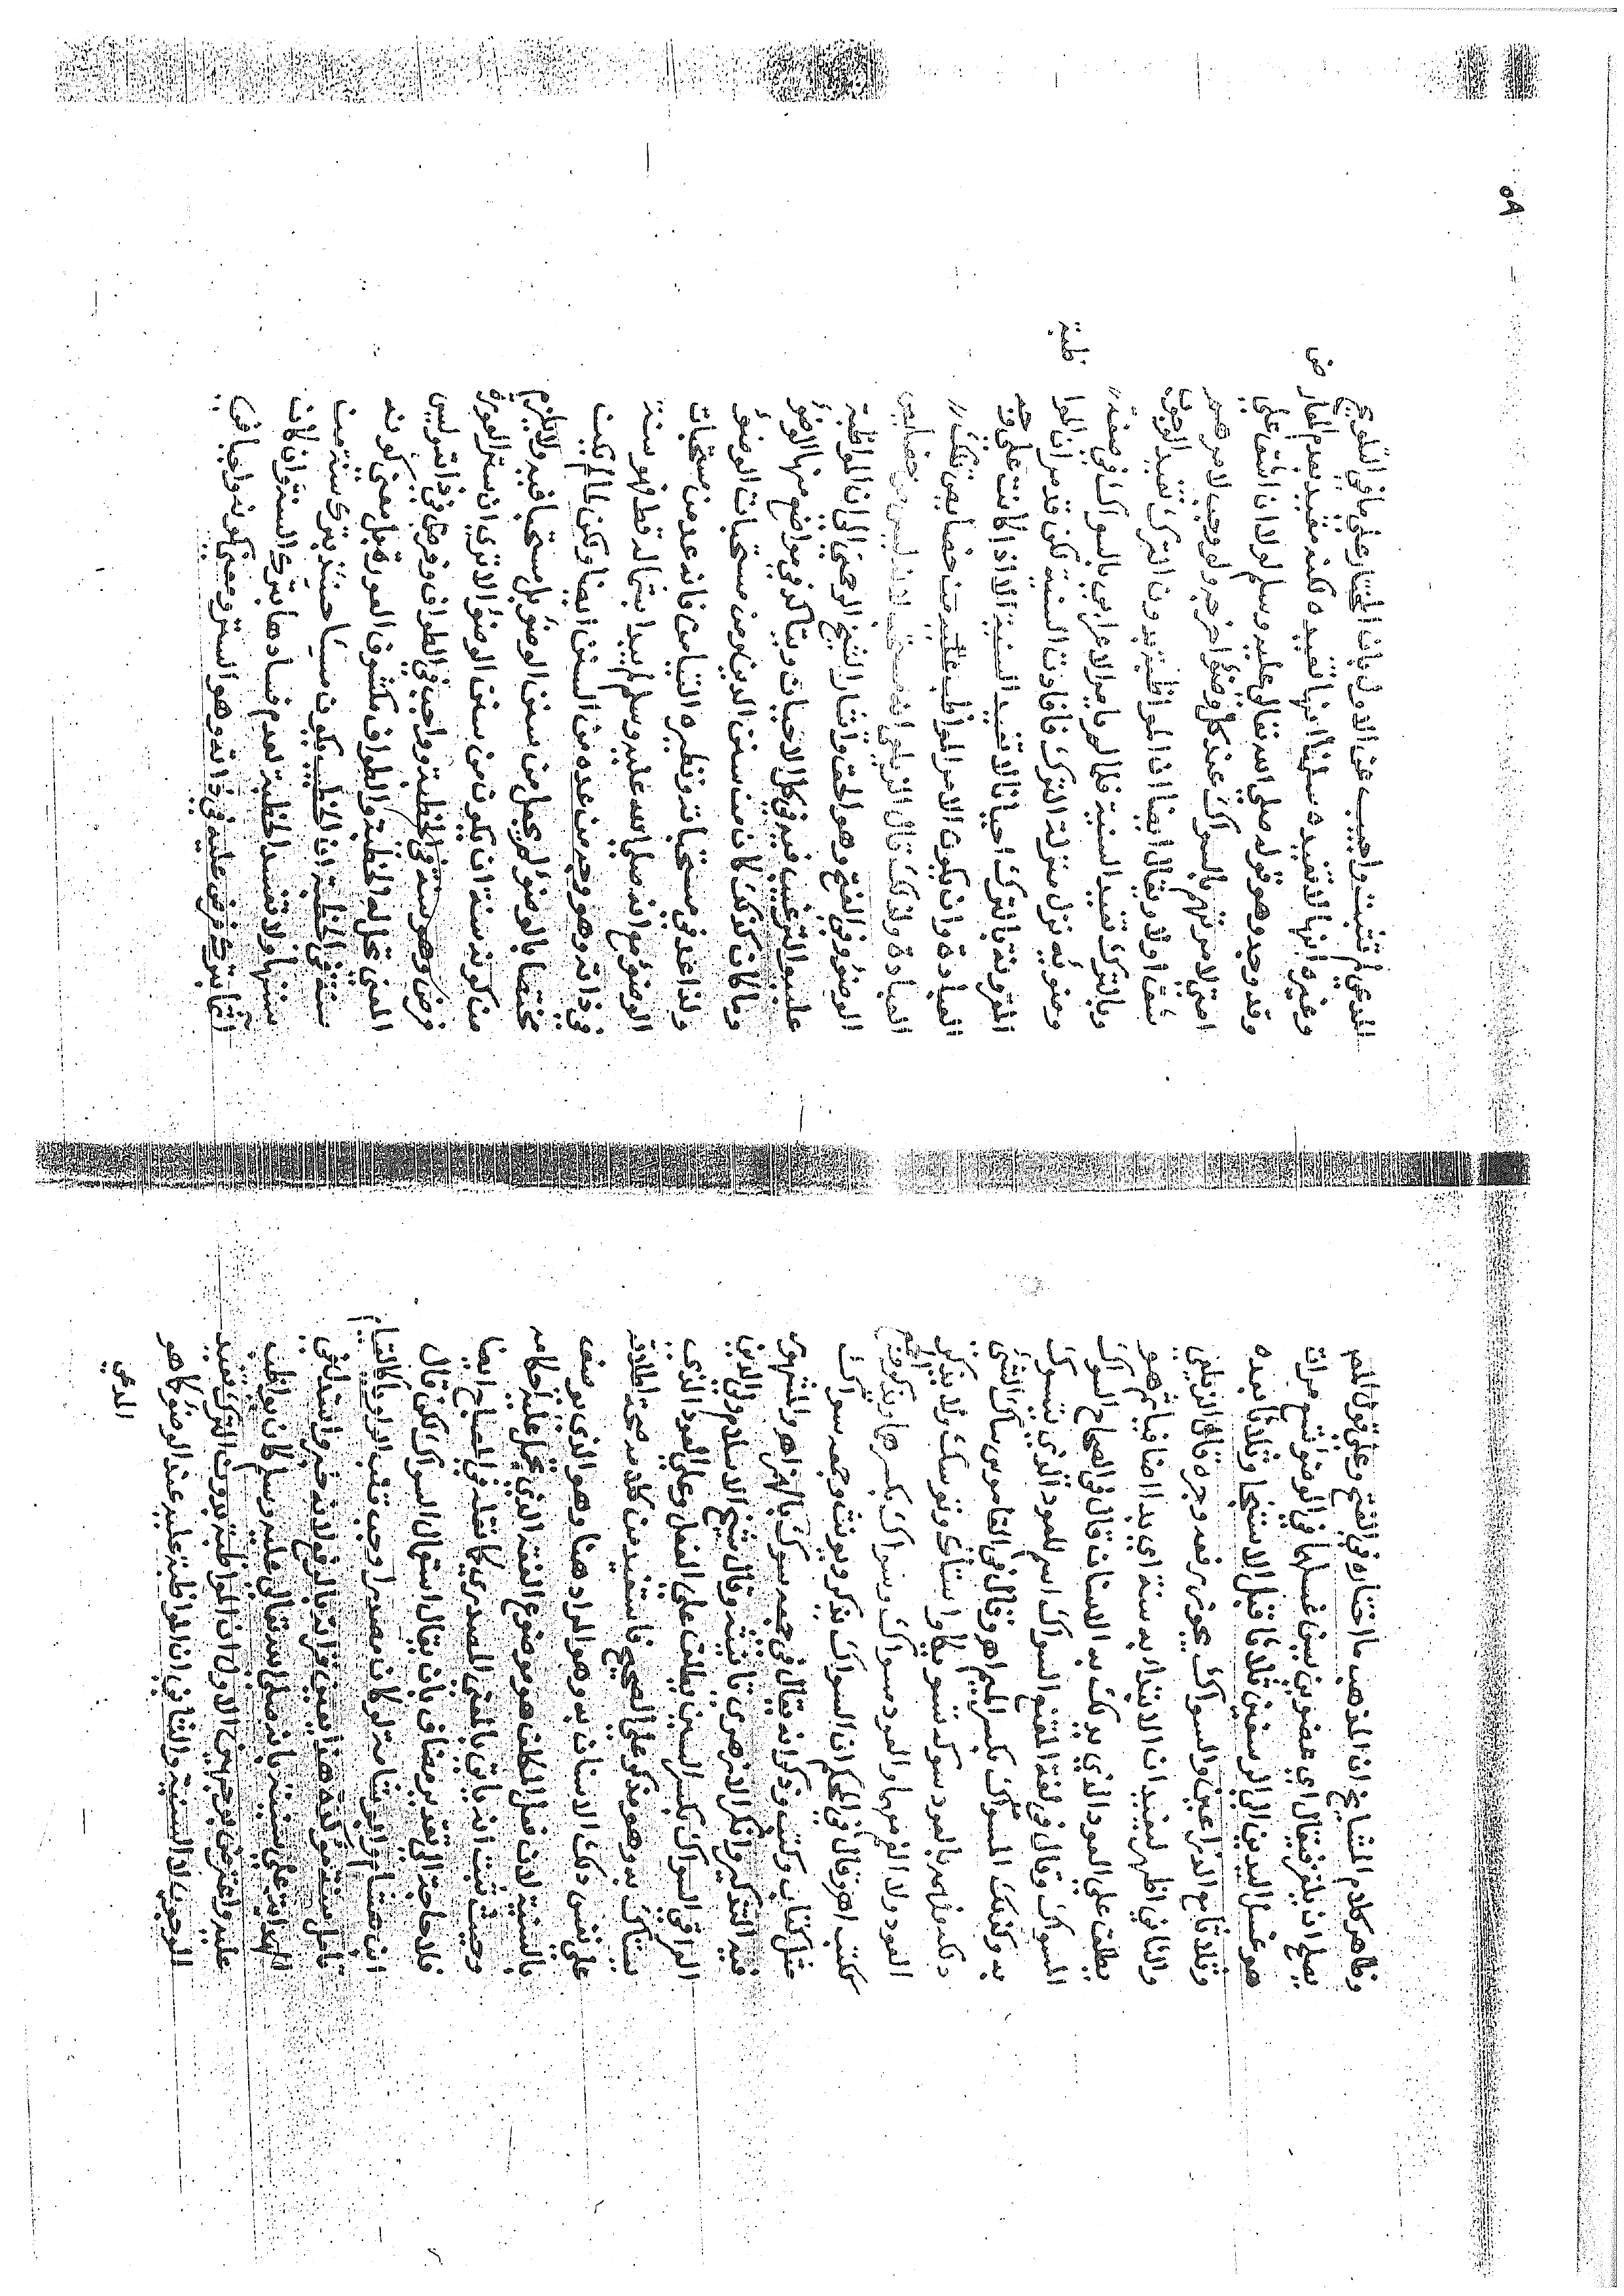 وظاهر كلام المشايخ ان المذهب ما اختاره في الفتح وعلى قول المص
يصلح ان يلغز فيقال اي عضوين يسن غسلهما في الوضوء تسع مرات
هو غسل اليدين الى الرسغين ثلاثا قبل الاستنجا وثلاثا بعده
وثلاثا مع الذراعين والسواك يجوز رفعه وجره قال الزيلعي
والثاني اظهر ليفيد ان الابتداء به سنة اي يبدا ايضا ثم هو
يطلق على العود الذي يدلك به الاسنان قال في الصحاح السواك
المسواك وقال في لغة المقنع السواك اسم للعود الذي يتسوك
به وكذلك المسواك بكسر الميم اهـ وقال في القاموس ساك الشي
دلكه وفاه بالعود سوكه تسويكا واستاك وتسوك ولا يذكر
العود ولا الفم معهما والعود مسواك وسواك بكسرهما ويذكر
ككتب اهـ وقال في المحكم ان السواك يذكر ويؤنث وجمعه سوك
مثل كتاب وكتب وذكر انه يقال في جمعه سوك بالهمز اهـ والمشهور
فيه التذكير وانكر الازهري تانيثه وقال شيخ الاسلام ولي الدين
العراقي السواك بكسر السين يطلق على الفعل وعلى العود الذي
يستاك به وهو مذكر على الصحيح فاستفيد من كلامه صحة اطلاقه
على نفس دلك الاسنان به وهو المراد هنا وهو الذي يوصف
بالسنية لان فعل المكلف هو موضوع الفقه الذي يحمل عليه احكامه
وحيث ثبت انه ياتي بالمعنى المصدري كما نقله في المصباح ايضا
فلا حاجة الى تقدير مضاف بان يقال استعمال السواك لكن قال
ابن هشام لو كان مصدرا وجب قلب الواو ياء كالقيام
تامل سنة مؤكدة هذا يعني قرائته بالرفع لانه خبر واستدل في
الهداية على سنيته بانه صلى الله تعالى عليه وسلم كان يواظب
عليه واعترض بوجهين الاول ان المواظبة بدون الترك تفيد
الوجوب لا السنية والثاني ان المواظبة عليه عند الوضوء كما هو
المدعي
٥٩
المدعي لم تثبت واجيب عن الاول بان المختار على ما في التلويح
وغيره انها لا تفيده سلمنا انها تفيده لكنه مقيد بعدم المعارض
وقد وجد وهو قوله صلى الله تعالى عليه وسلم لولا ان اشق على
امتي لامرتهم بالسواك عند كل وضوء اخرجه ولو وجب لامرهم
شق اولا ويقال ايضا ان المواظبة بدون الترك تفيد الوجوب
وبالترك تفيد السنية فلما لم يامر الاعرابي بالسواك في صفة
وضوئه نزل منزلة الترك فافادت السنية لكن قد مر ان المواظبة
المقرونة بالترك احيانا لا تفيد السنية الا اذا كانت على وجه
العبادة وان يكون الامر المواظب عليه من خصايص تلك
العبادة ولذلك قال الزيلعي انه مستحب لانه ليس من خصايص
الوضوء وفي الفتح وهو الحق واشار الشيخ الرحمتي الى ان المواظبة
عليه والترغيب فيه في كل الاحيان ويتاكد في مواضع منها الوضوء
وما كان كذلك كان من سنن الدين ومن مستحبات الوضوء
ولذا عد في مستحباته ونظيره التيامن فانه عد من مستحبات
الوضوء مع انه صلى الله عليه وسلم لم يبدا بشماله قط فهو سنة
في ذاته وهو وجه من عده من السنن ايضا ولكن لما لم يكن
مختصا بالوضوء لم يجعل من سنن الوضوء بل مستحبا فيه ولا يلزم
من كونه سنة ان يكون من سنن الوضوء الا ترى ان ستر العورة
فرض وهو سنة في الخطبة وواجب في الطواف وفرض في ذاته وليس
المعنى تحل له الخطبة والطواف مكشوف العورة بل معنى كونه
سنة في الخطبة ان الخطيب يكون مسيا حينئذ بترك سنة من
سننها ولا تفسد الخطبة لعدم فسادها بترك السنة وان كان
آثما بترك فرض عليه في ذاته وهو الستر ومعنى كونه واجبا في